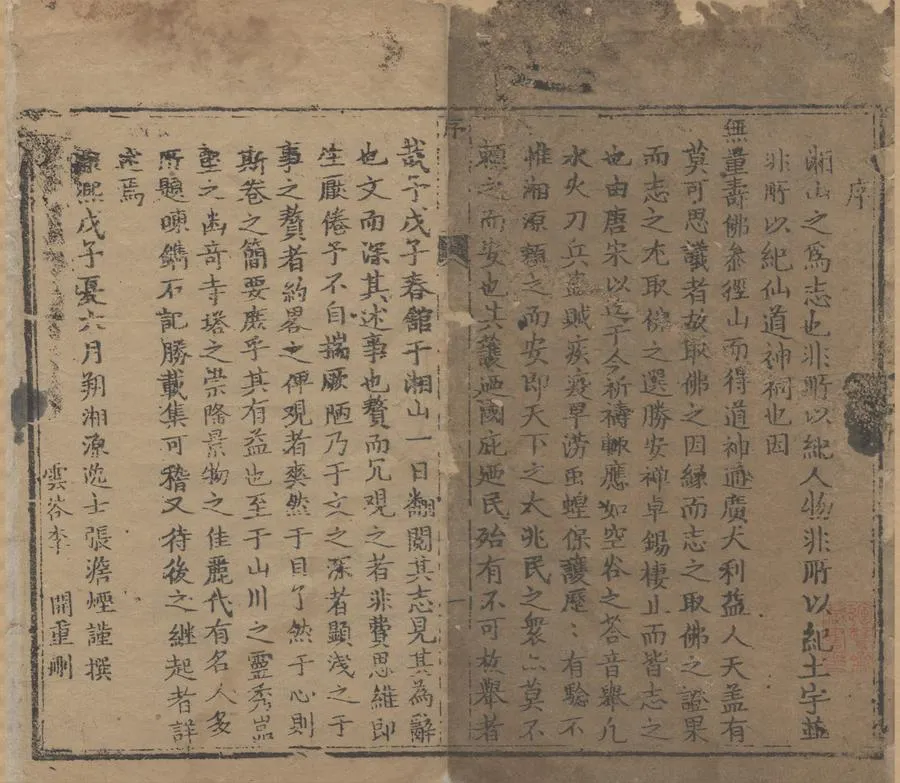 序
湘山之為志也非所以紀人物非所以紀土宇並
非所以紀仙道神祠也因
無量壽佛參徑山而得道神通廣大利益人天盖有
莫可思議者故取佛之因緣而志之取佛之證果
而志之尤取佛之選勝安禪卓錫棲止而皆志之
也由唐宋以迄于今祈禱輒應如空谷之荅音舉凡
水火刀兵盗賊疾疫旱澇虫蝗保護歷：有驗不
惟湘源賴之而安即天下之大兆民之衆亦莫不
賴之而安也其護國庇民殆有不可枚舉者
序
一
哉予戊子春舘于湘山一日翻閱其志見其為辭
也文而深其述事也贅而冗觀之者非費思維即
生厭倦予不自揣厥陋乃于文之深者顯淺之于
事之贅者約畧之俾觀者爽然于目了然于心則
斯卷之簡要庶乎其有益也至于山川之靈秀嵓
壑之幽竒寺塔之崇隆景物之佳麗代有名人多
所題咏鐫石記勝載集可稽又待後之継起者詳
之焉
康熈戊子憂六月朔湘源逸士張澹煙謹撰
雲峇李
開重刪